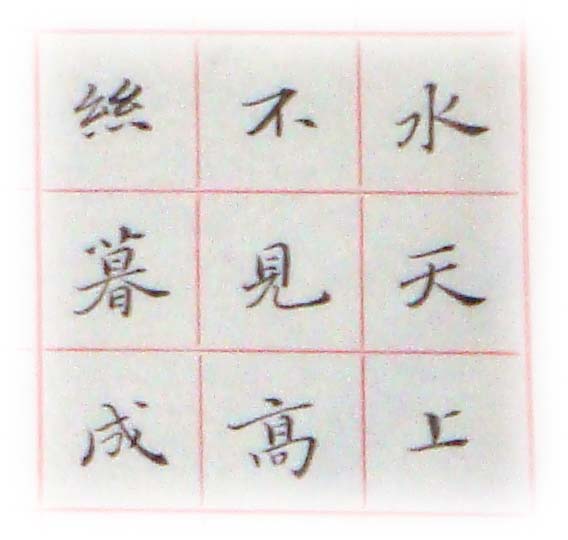 水天上
不見高
絲暮成